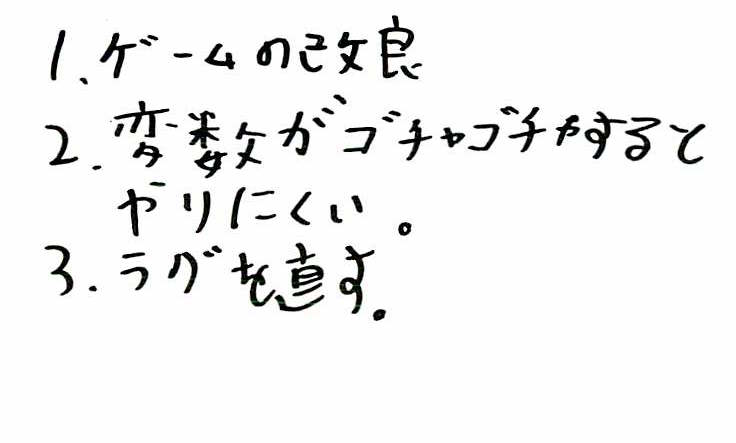 1.ゲームの改良
2.変数がゴチャゴチャすると
やりにくい。
3.ラグを直す。